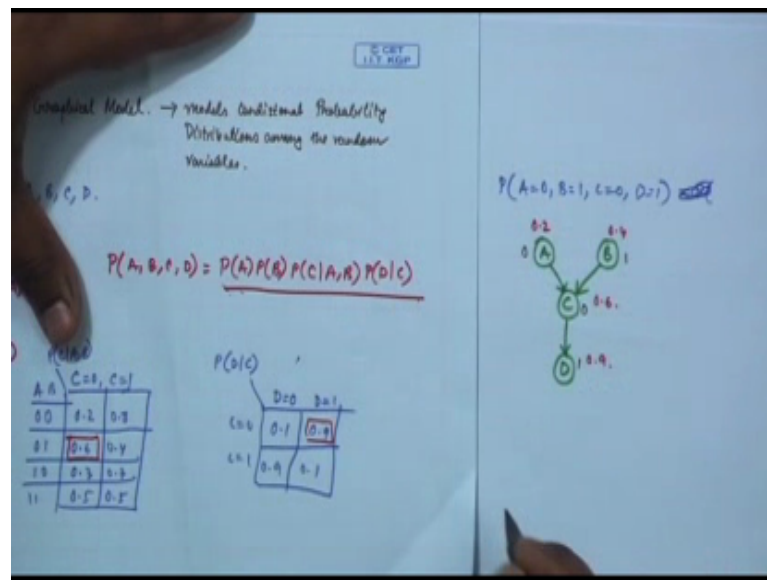 © CET
I.I.T. KGP
Graphical Model. → models Conditional Probability
Distributions among the random
variables.
B, C, D.
P(A, B, C, D) = P(A) P(B) P(C|A,B) P(D|C)
A B C=0, C=1
00 0.2 0.8
01 0.6 0.4
10
11 0.5 0.5
P(D|C)
D=0 D=1
C=0 0.1 0.9
C=1 0.9 0.1
P(A=0, B=1, C=0, D=1)
0.2 0.4
0 A B 1
C 0 0.6.
D 1 0.9.